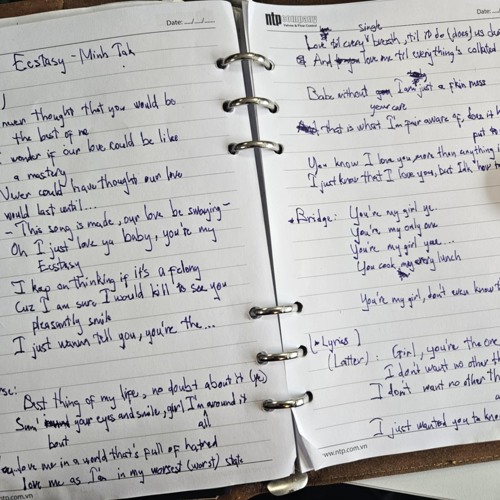 Date: __/__/__
Ecstasy - Minh Tah
never thought that you would be
the best of me
wonder if our love could be like
a mastery
Never could have thought our love
would last until...
- This song is made, our love be swaying -
Oh I just love ya baby, you're my
Ecstasy
I keep on thinking if it's a felony
Cuz I am sure I would kill to see you
pleasantly smile
I just wanna tell you, you're the...
Best thing of my life, no doubt about it (ye)
Sum' your eyes and smile, girl I'm around it
bout all
love me in a world that's full of hatred
love me as I'm in my worsest (worst) state
ntp.com.vn
ntp company
Date: __/__/__
single
Love 'til every breath, 'til to do (does) us
And love me til everything's collated
Babe without I am just a plain mess
your care
that is what I'm pair aware of, does it
put
You know I love you, more than anything
I just know that I love you, but Idk how
* Bridge: You're my girl ye..
You're my only one
You're my girl yee...
You cook my every lunch
You're my girl, don't even know
[* Lyrics]
(Latter): Girl, you're the one
I don't want no other
I don't want no other
I just wanted you to
www.ntp.com.vn